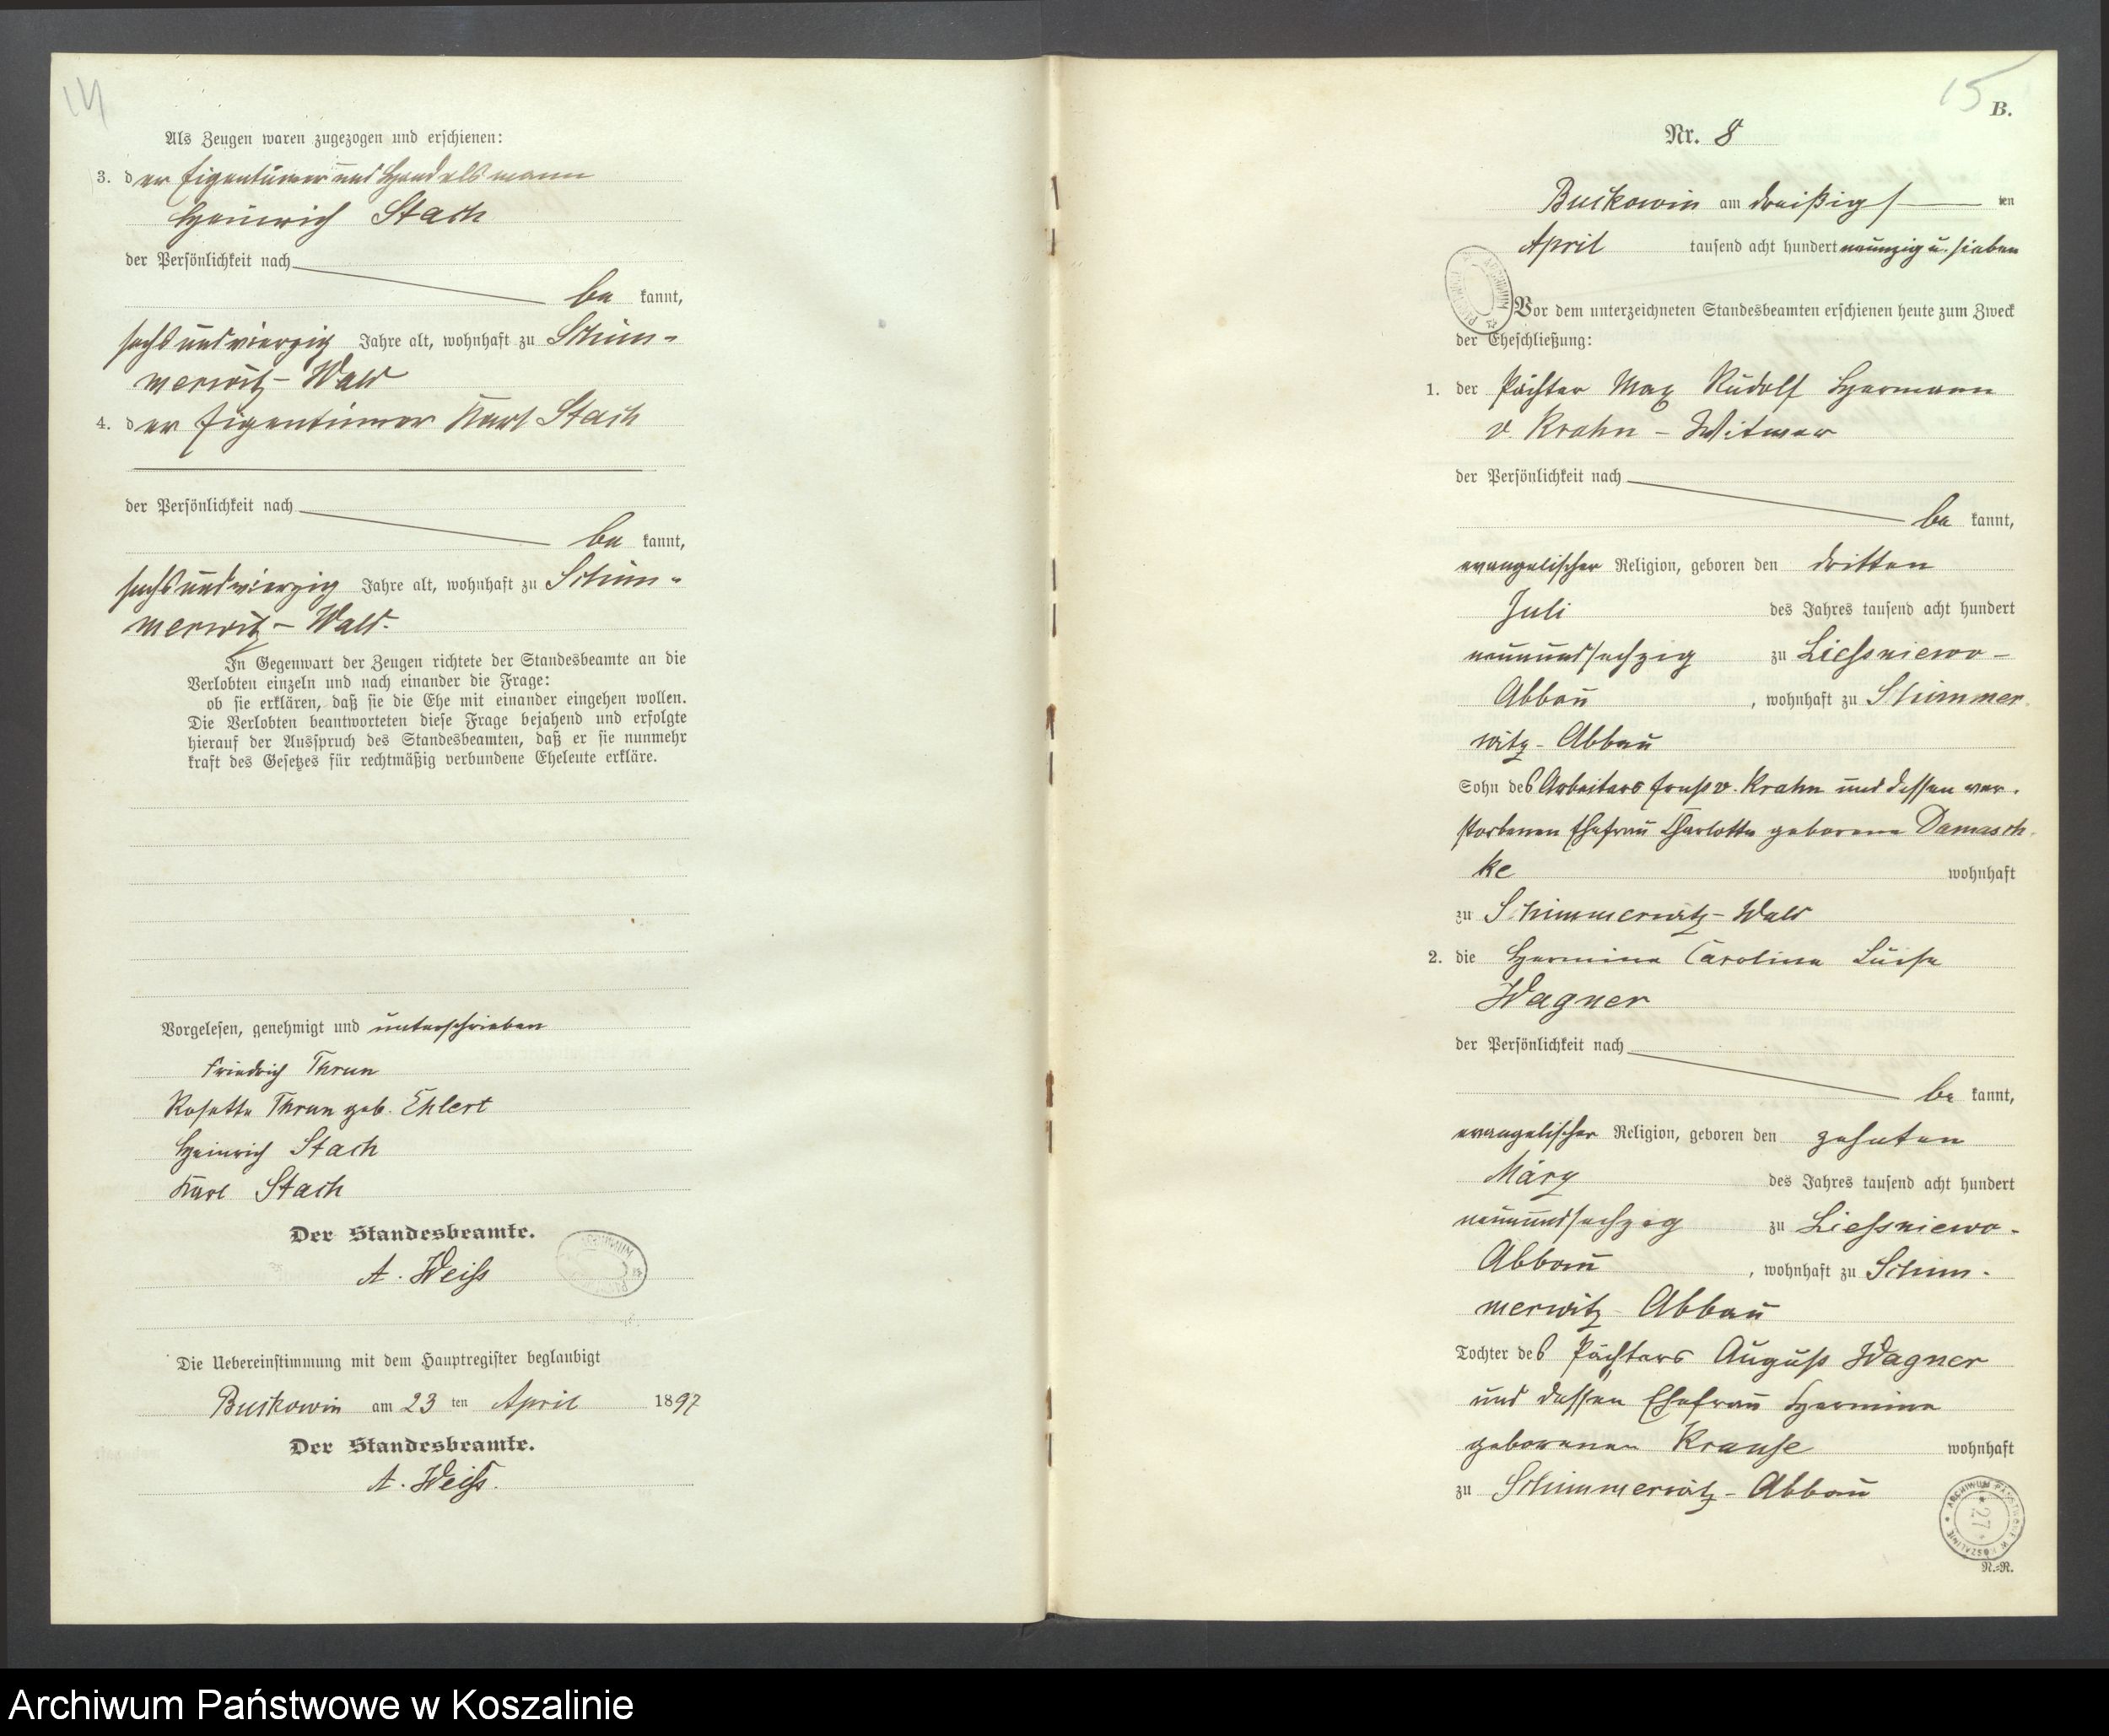 14
Als Zeugen waren zugezogen und erschienen:
3. der Eigentümer und Handelsmann
Heinrich Stach
der Persönlichkeit nach
be kannt,
sechsundvierzig Jahre alt, wohnhaft zu Schim-
merwitz-Wald
4. der Eigentümer Karl Stach
der Persönlichkeit nach
be kannt,
sechsundvierzig Jahre alt, wohnhaft zu Schim-
merwitz-Wald.
In Gegenwart der Zeugen richtete der Standesbeamte an die
Verlobten einzeln und nach einander die Frage:
ob sie erklären, daß sie die Ehe mit einander eingehen wollen.
Die Verlobten beantworteten diese Frage bejahend und erfolgte
hierauf der Ausspruch des Standesbeamten, daß er sie nunmehr
kraft des Gesetzes für rechtmäßig verbundene Eheleute erkläre.
Vorgelesen, genehmigt und unterschrieben
Friedrich Thrun
Rosette Thrun geb. Ehlert
Heinrich Stach
Karl Stach
Der Standesbeamte.
A. Weiß
Die Uebereinstimmung mit dem Hauptregister beglaubigt
Buckowin am 23 ten April 1897
Der Standesbeamte.
A. Weiß.
15
B.
Nr. 8
Buckowin am dreißigs ten
April tausend acht hundert neunzig u. sieben
Vor dem unterzeichneten Standesbeamten erschienen heute zum Zweck
der Eheschließung:
1. der Pächter Max Rudolf Hermann
v. Krahn - Witwer
der Persönlichkeit nach
be kannt,
evangelischer Religion, geboren den dritten
Juli des Jahres tausend acht hundert
neunundsechzig zu Liessniewo-
Abbau, wohnhaft zu Schimmer
witz-Abbau
Sohn des Arbeiters Ernst v. Krahn und dessen ver-
storbenen Ehefrau Charlotte geborene Damasch-
ke wohnhaft
zu Schimmerwitz-Wald
2. die Hermine Caroline Luise
Wagner
der Persönlichkeit nach
be kannt,
evangelischer Religion, geboren den zehnten
März des Jahres tausend acht hundert
neunundsechzig zu Liessniewo-
Abbau, wohnhaft zu Schim-
merwitz-Abbau
Tochter des Pächters August Wagner
und dessen Ehefrau Hermine
geborenen Krause wohnhaft
zu Schimmerwitz-Abbau
ARCHIWUM PAŃSTWOWE W KOSZALINIE
27
N.-R.
Archiwum Państwowe w Koszalinie